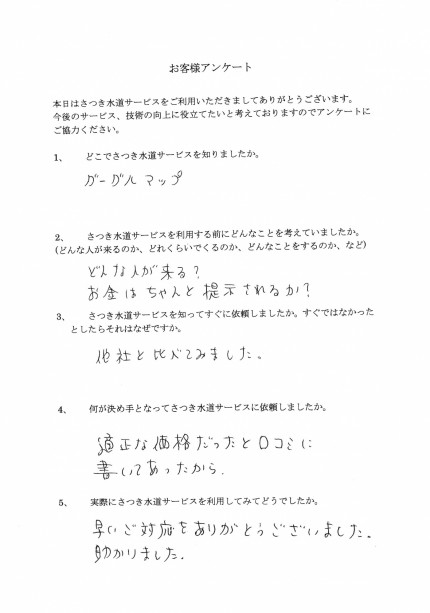 お客様アンケート
本日はさつき水道サービスをご利用いただきましてありがとうございます。
今後のサービス、技術の向上に役立てたいと考えておりますのでアンケートに
ご協力ください。
1、 どこでさつき水道サービスを知りましたか。
グーグルマップ
2、 さつき水道サービスを利用する前にどんなことを考えていましたか。
(どんな人が来るのか、どれくらいでくるのか、どんなことをするのか、など)
どんな人が来る?
お金はちゃんと提示されるか?
3、 さつき水道サービスを知ってすぐに依頼しましたか。すぐではなかった
としたらそれはなぜですか。
他社と比べてみました。
4、 何が決め手となってさつき水道サービスに依頼しましたか。
適正な価格だったと口コミに
書いてあったから.
5、 実際にさつき水道サービスを利用してみてどうでしたか。
早いご対応をありがとうございました.
助かりました.